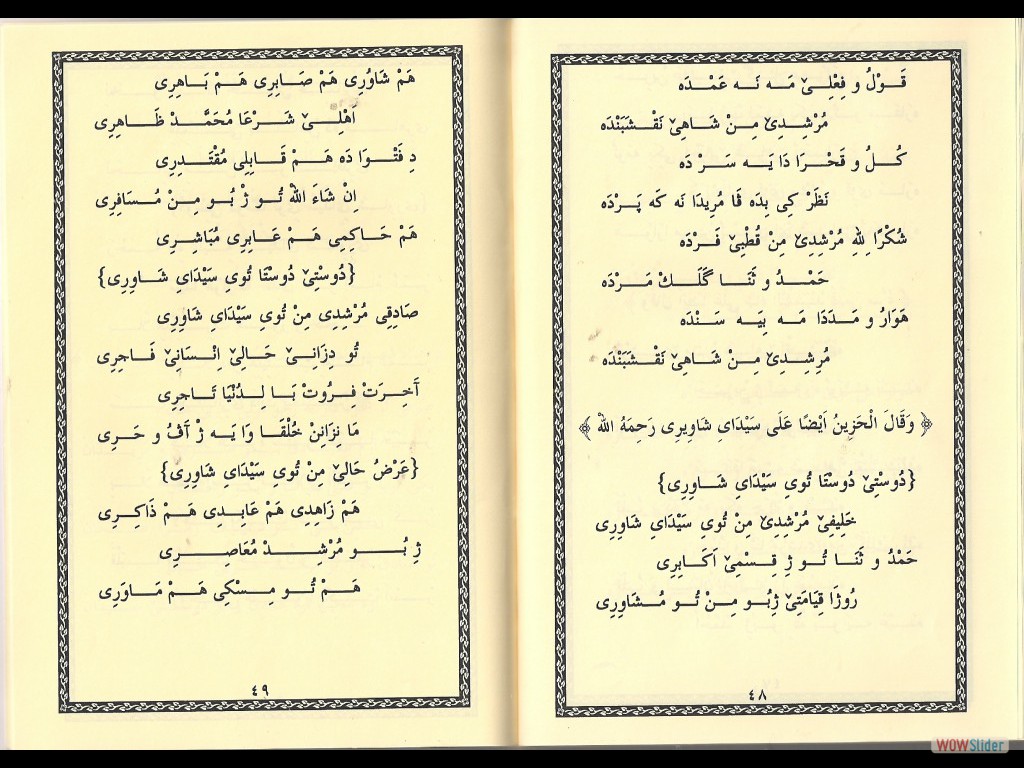 قَوْلُ و فِعْلِىْ مَه نَه عَمْدَه
مُرْشِدِىْ مِنْ شَاهِىْ نَقْشَبَنْدَه
كُلُ و قَحْرَا دَا يَه سَرْ دَه
نَظَرْ كِى بِدَه ڤَا مُرِيدَا نَه كَه پَرْدَه
شُكْرًا لِلهِ مُرْشِدِىْ مِنْ قُطْبِىْ فَرْدَه
حَمْدُ و ثَنَا گَلَكْ مَرْدَه
هَوَارُ و مَدَدَا مَه بِيَه سَنْدَه
مُرِشِدِىْ مِنْ شَاهِىْ نَقْشَبَنْدَه
﴿ وَقَالَ الْحَزِينُ اَيْضًا عَلَى سَيْدَاىِ شَاوِيرِى رَحِمَهُ اللهْ ﴾
{دُوسْتِىْ دُوسْتَا تُوىِ سَيْدَاىِ شَاوِرِى}
خَلِيفِىْ مُرْشِدِىْ مِنْ تُوىِ سَيْدَاىِ شَاوِرِى
حَمْدُ و ثَنَا تُو ژِ قِسْمِىْ اَكَابِرِى
رُوژَا قِيَامَتِىْ ژِبُو مِنْ تُو مُشَاوِرِى
٤٨
هَمْ شَاوُرِى هَمْ صَابِرِى هَمْ بَاهِرِى
اَهْلِىْ شَرْعَا مُحَمَّدْ ظَاهِرِى
دِ فَتْوَا دَه هَمْ قَابِلِى مُقْتَدِرِى
اِنْ شَاءَ اللهْ تُو ژْ بُو مِنْ مُسَافِرِى
هَمْ حَاكِمِى هَمْ عَابِرِى مُبَاشِرِى
{دُوسْتِىْ دُوسْتَا تُوىِ سَيْدَاىِ شَاوِرِى}
صَادِقِى مُرْشِدِى مِنْ تُوىِ سَيْدَاىِ شَاوِرِى
تُو دِزَانِىْ حَالِىْ اِنْسَانِىْ فَاجِرِى
آخِرَتْ فِرُوتْ بَا لِدُنْيَا تَاجِرِى
مَا نِزَانِنْ خُلْقَا وَا يَه ژْ آڤُ و حَرِى
{عَرْضُ حَالِىْ مِنْ تُوىِ سَيْدَاىِ شَاوِرِى}
هَمْ زَاهِدِى هَمْ عَابِدِى هَمْ ذَاكِرِى
ژِ بُو مُرْشِدْ مُعَاصِرِى
هَمْ تُو مِسْكِى هَمْ مَاوَرِى
٤٩
WOWSlider